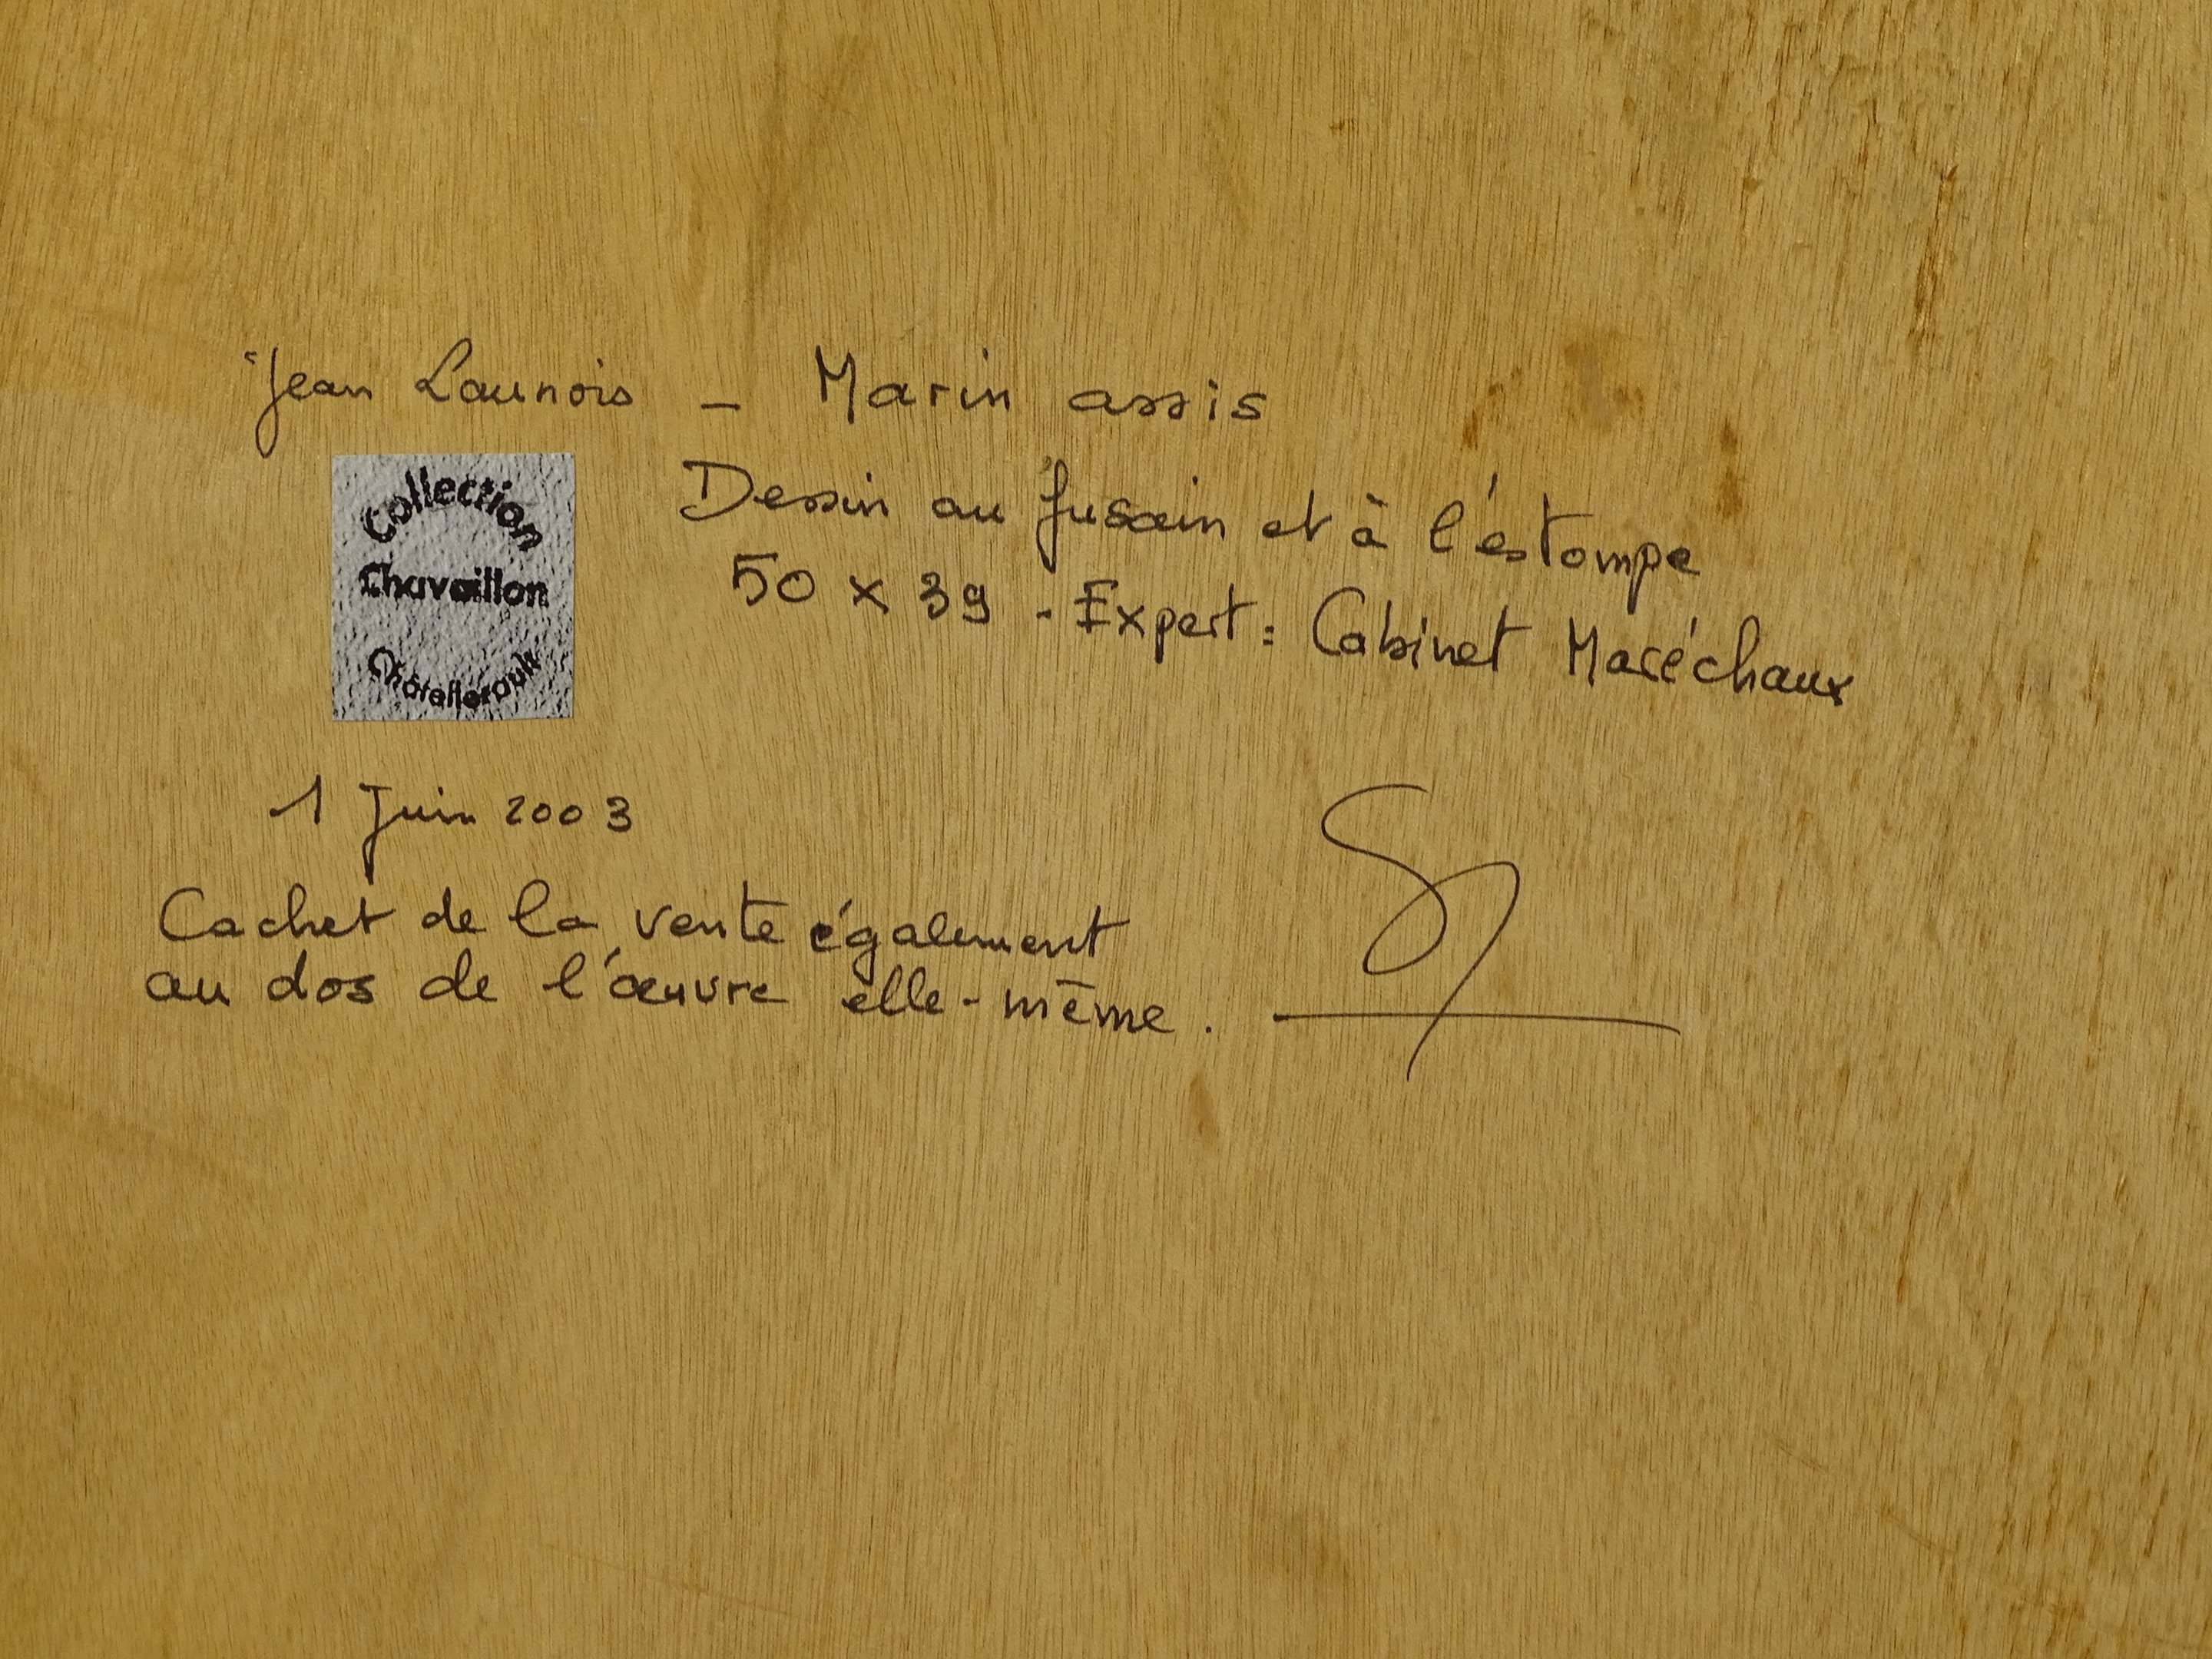 Jean Launois – Marin assis
Collection
Chavaillon
Châtellerault
Dessin au fusain et à l'estompe
50 x 39 - Expert : Cabinet Maréchaux
1 Juin 2003
Cachet de la vente également
au dos de l'œuvre elle-même.